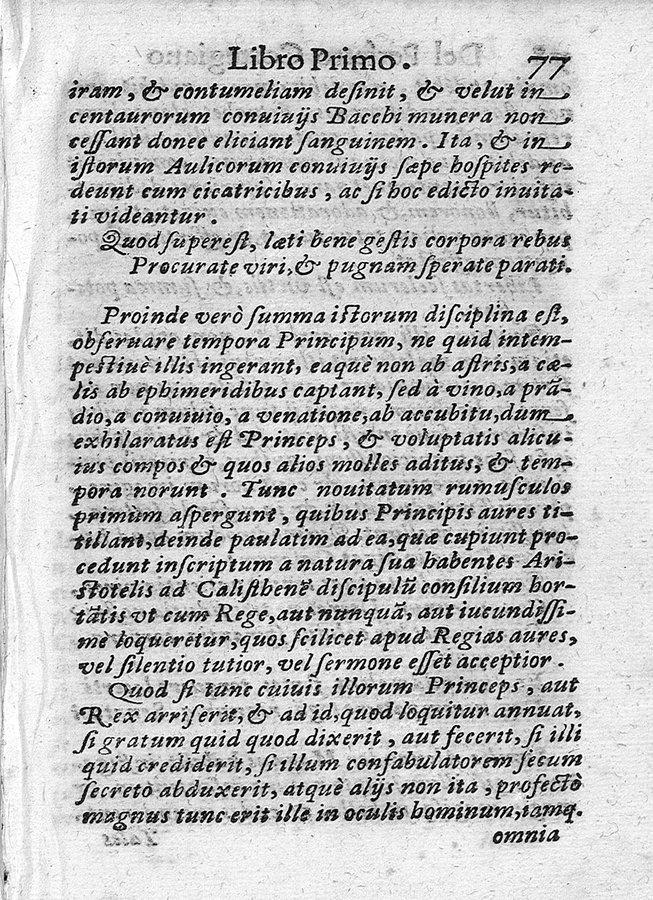 Libro Primo. 77
iram, & contumeliam desinit, & velut in
centaurorum conuiuijs Bacchi munera non
cessant donec eliciant sanguinem. Ita, & in
istorum Aulicorum conuiuijs sæpe hospites re-
deunt cum cicatricibus, ac si hoc edicto inuita-
ti videantur.
Quod superest, læti bene gestis corpora rebus
Procurate viri, & pugnam sperate parati.
Proinde verò summa istorum disciplina est,
obseruare tempora Principum, ne quid intem-
pestiuè illis ingerant, eaquè non ab astris, a cæ-
lis ab ephimeridibus captant, sed à vino, a prã-
dio, a conuiuio, a venatione, ab accubitu, dum
exhilaratus est Princeps, & voluptatis alicu-
ius compos & quos alios molles aditus, & tem-
pora norunt. Tunc nouitatum rumusculos
primùm aspergunt, quibus Principis aures ti-
tillant, deinde paulatim ad ea, quæ cupiunt pro-
cedunt inscriptum a natura sua habentes Ari-
stotelis ad Calisthenẽ discipulũ consilium hor-
tãtis vt cum Rege, aut nunquã, aut iucundissi-
mè loqueretur, quos scilicet apud Regias aures,
vel silentio tutior, vel sermone esset acceptior.
Quod si tunc cuiuis illorum Princeps, aut
Rex arriserit, & ad id, quod loquitur annuat,
si gratum quid quod dixerit, aut fecerit, si illi
quid crediderit, si illum confabulatorem secum
secretò abduxerit, atquè alijs non ita, profectò
magnus tunc erit ille in oculis hominum, iamq.
omnia